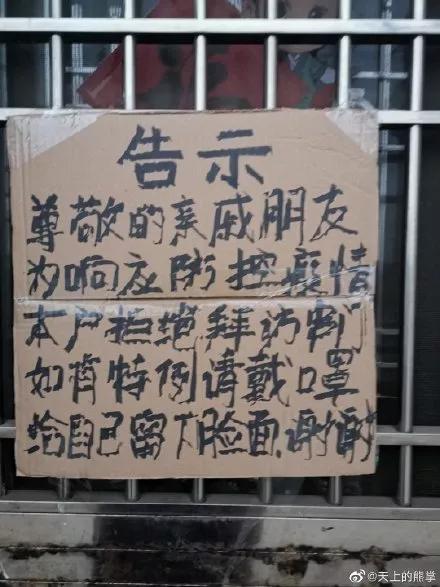 告示
尊敬的亲戚朋友
为响应防控疫情
本户拒绝拜访
如有特例请戴口罩
给自己留下脸面.谢谢
@天上的熊学